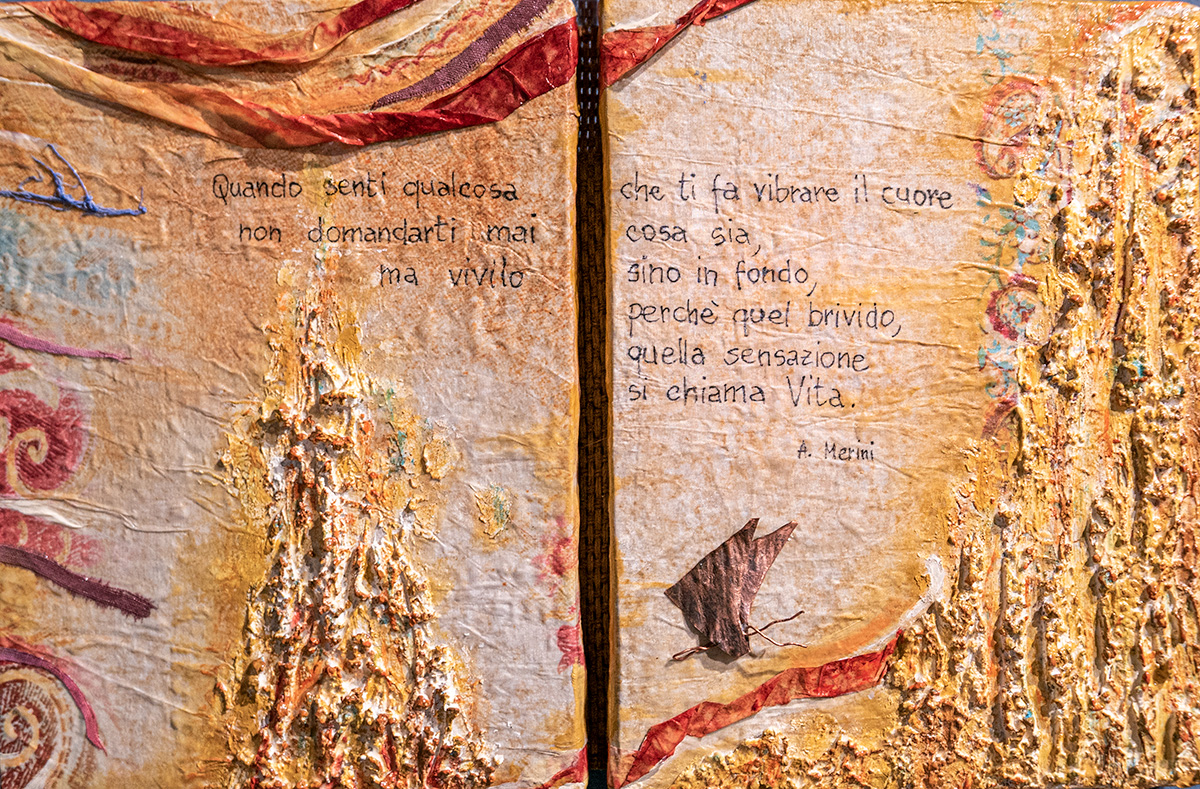 Quando senti qualcosa che ti fa vibrare il cuore
non domandarti mai cosa sia,
ma vivilo sino in fondo,
perchè quel brivido,
quella sensazione
si chiama Vita.
A. Merini